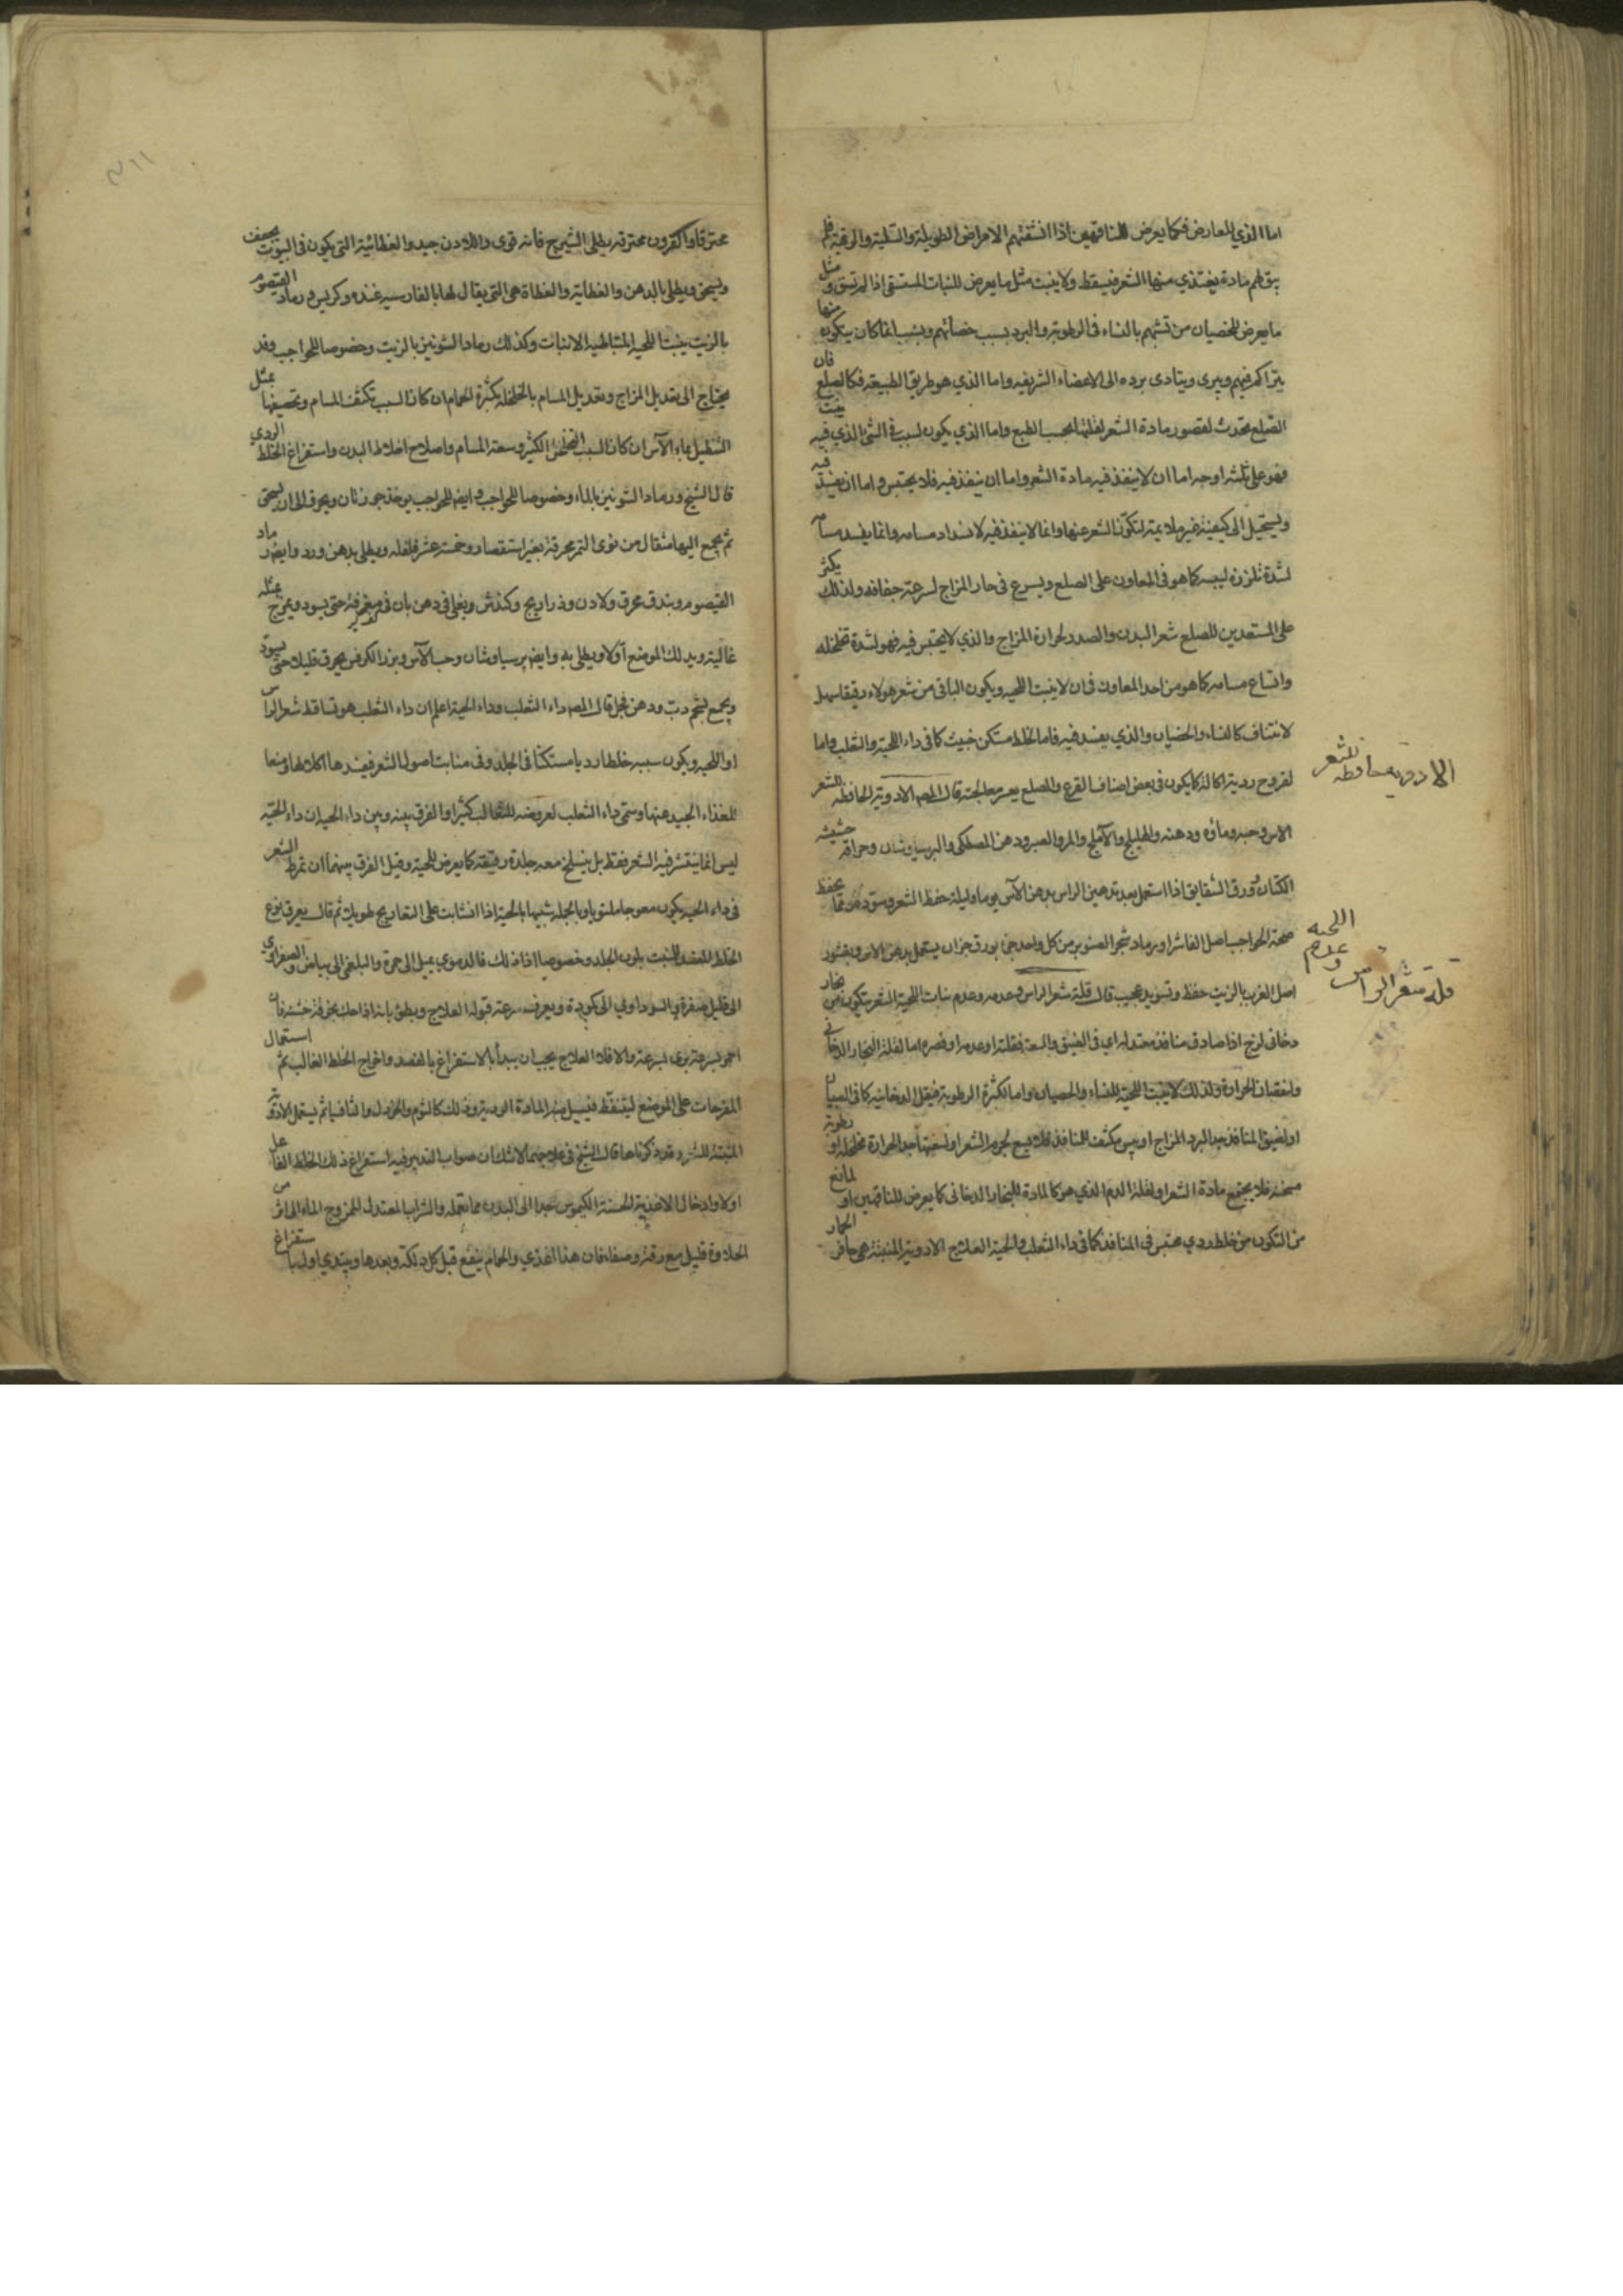 اما الذي للعارض فكما يعرض للناقهين اذا انتشفتهم الامراض الطويلة والسلية والدقية فلم
يبق لهم مادة يغتذي منها الشعر فيسقط ولا ينبت مثل ما يعرض للنبات المستقى اذا لم تسق و مثل
ما يعرض للخصيان من تشبههم بالنساء في الرطوبة والبرد بسبب خصائهم وبسبب انما كان يتكون منها
يتراكم فيهم ويبرى ويتادى برده الى الاعضاء الشريفه واما الذي هو طريق الطبيعة فكالصلع فان
الصلع يحدث لقصور مادة الشعر لقلتها بحسب الطبع واما الذي يكون لسبب في الشئ الذي فيه ينبت
فهو على ثلثه اوجه اما ان لا ينفذ فيه مادة الشعر واما ان ينفذ فيه فلا يحتبس واما ان يفسد فيه
ويستحيل الى كيفية غير ملايمة لتكون الشعر عنها وانما لا ينفذ فيه لانسداد مسامه وانما يفسد مسامه
لشدة تلززه ليبسه كما هو في المعاون على الصلع ويسرع في حار المزاج لسرعة جفافه ولذلك يكثر
على المستعدين للصلع شعر البدن والصدر لحرارة المزاج والذي لا يحتبس فيه فهو لشدة تخلخله
واتساع مسامه كما هو من احد المعاون في ان لا ينبت اللحيه ويكون الباقي من شعر هولاء رقيقا سهل
الانتتاف كالنساء والخصيان والذي يفسد فيه فاما لخلط مستكن خبيث كما في داء الحية والثعلب واما
لقروح ردية اكالة كما يكون في بعض اصناف القرع والصلع يعسر معالجته قال المص الادوية الحافظة للشعر
الاس وحبه وماؤه ودهنه والهليلج والاملج والمر والصبر ودهن المصطكى والبرسياوشان وحراقة حشيشة
الكتان وورق الشقايق اذا استعمل بعد تدهين الراس بدهن الآس يوما وليلة حفظ الشعر وسوده ومما يحفظ
صحة الحواجب اصل الفاشرا ورماد شجر الصنوبر من كل واحد جزء بورق جزان يستعمل بدهن الاس وبقشور
اصل الغرب بالزيت حفظ وتسويد عجيب قال قلة شعر الراس وعدمه وعدم نبات اللحية الشعر يتكون من بخار
دخانى لزج اذا صادف منافذ معتدله اي في الضيق والسعة فقلته او عدمه او قصره اما لقلة البخار الدخانى
ولنقصان الحرارة ولذلك لا ينبت اللحية للنساء والخصيان واما لكثرة الرطوبة فيقل الدخانيه كما في الصبيان
او لضيق المنافذ جدا لبرد المزاج او يبس مكثف للمنافذ فلا يسع لجرم الشعر او لسعتها جدا لحرارة مخلخلة او رطوبة
مرخية فلا يجتمع مادة الشعر او لقلة الدم الذي هو كالمادة للبخار الدخانى كما يعرض للناقهين او لمانع
من التكون من خلط ردي محتبس في المنافذ كما في داء الثعلب والحية العلاج الادوية المنبتة هي حافر الحمار
الادويه حافظه للشعر
قلة شعر الراس وعدم اللحيه
محترقا او القرون محترقه يطلى بالشيرج فانه قوى واللادن جيد والعظائية التي يكون في البيوت يجفف
ويسحق ويطلى بالدهن والعظاية والعظاة هي التي يقال لها بالفارسيه غنده وكربس ورماد القيصوم
بالزيت ينبت اللحية المتباطية الانبات وكذلك رماد الشونيز بالزيت وخصوصا للحواجب وقد
يحتاج الى تعديل المزاج وتعديل المسام بالخلخلة بكثرة الحمام ان كان السبب تكثف المسام وتضييقها بمثل
التنطيل بماء الآس ان كان السبب التخلخل الكثير وسعة المسام واصلاح اخلاط البدن واستفراغ الخلط الردي
قال الشيخ ورماد الشونيز بالماء وخصوصا للحواجب وايضا للحواجب يوخذ جوزتان ويحرق الى ان يسحق
ثم يجمع اليها مثقال من نوى التمر محرقة بغير استقصاء وخمسة عشر فلفله ويطلى بدهن ورد وايضا رماد
القيصوم وبندق محرق ولادن وذراريح وكندش ويغلى في دهن بان في مغرفة حتى يسود ويمزج بمثله
غالية ويدلك الموضع اولا ويطلى به وايضا برسياوشان وحب الآس وبزر الكرفس يحرق قليلا حتى يسود
ويجمع بشحم دب ودهن فجل قال المص داء الثعلب وداء الحية اعلم ان داء الثعلب هو تساقط شعر الراس
او اللحيه ويكون سببه خلطا رديا مستكنا في الجلد وفي منابت اصول الشعر فيفسدها اكلا لها ومنعا
للغذاء الجيد عنها وسمى داء الثعلب لعروضه للثعالب كثيرا والفرق بينه وبين داء الحية ان داء الحية
ليس انما ينتشر فيه الشعر فقط بل ينسلخ معه جلدة رقيقة كما يعرض للحية وقيل الفرق بينهما ان تمرط الشعر
في داء الحية يكون معوجا ملتويا وبالجلد شبيها بالحية اذا انسابت على التعاريج طويلا ثم قال يعرف نوع
الخلط المفسد للمنبت بلون الجلد وخصوصا اذا دلك فالدموي يميل الى حمرة والبلغمي الى بياض والصفراوي
الى قليل صفرة والسوداوي الى كمودة ويعرف سرعة قبوله العلاج وبطؤه بانه اذا دلك بخرقة خشنة فان
احمر بسرعة برى بسرعة والا فلا العلاج يجب ان يبدأ بالاستفراغ بالفصد واخراج الخلط الغالب ثم استعمال
المقرحات على الموضع ليتنفط فيسيل منه المادة الردية وذلك كالثوم والخردل والثافسيا ثم يستعمل الادوية
المنبتة للشعر وقد ذكرناها قال الشيخ في علاجهما لا شك ان صواب التدبير فيه استفراغ ذلك الخلط الفاعل
اولا وادخال الاغذية الحسنة الكيموس جدا الى البدن مما تعمله والشراب المعتدل الممزوج الماء من
الحلاوة قليل مع رقة وصفاء فان هذا اغذى والحمام ينفع قبل كل دلكة وبعدها ويبتدي اولا باستفراغ